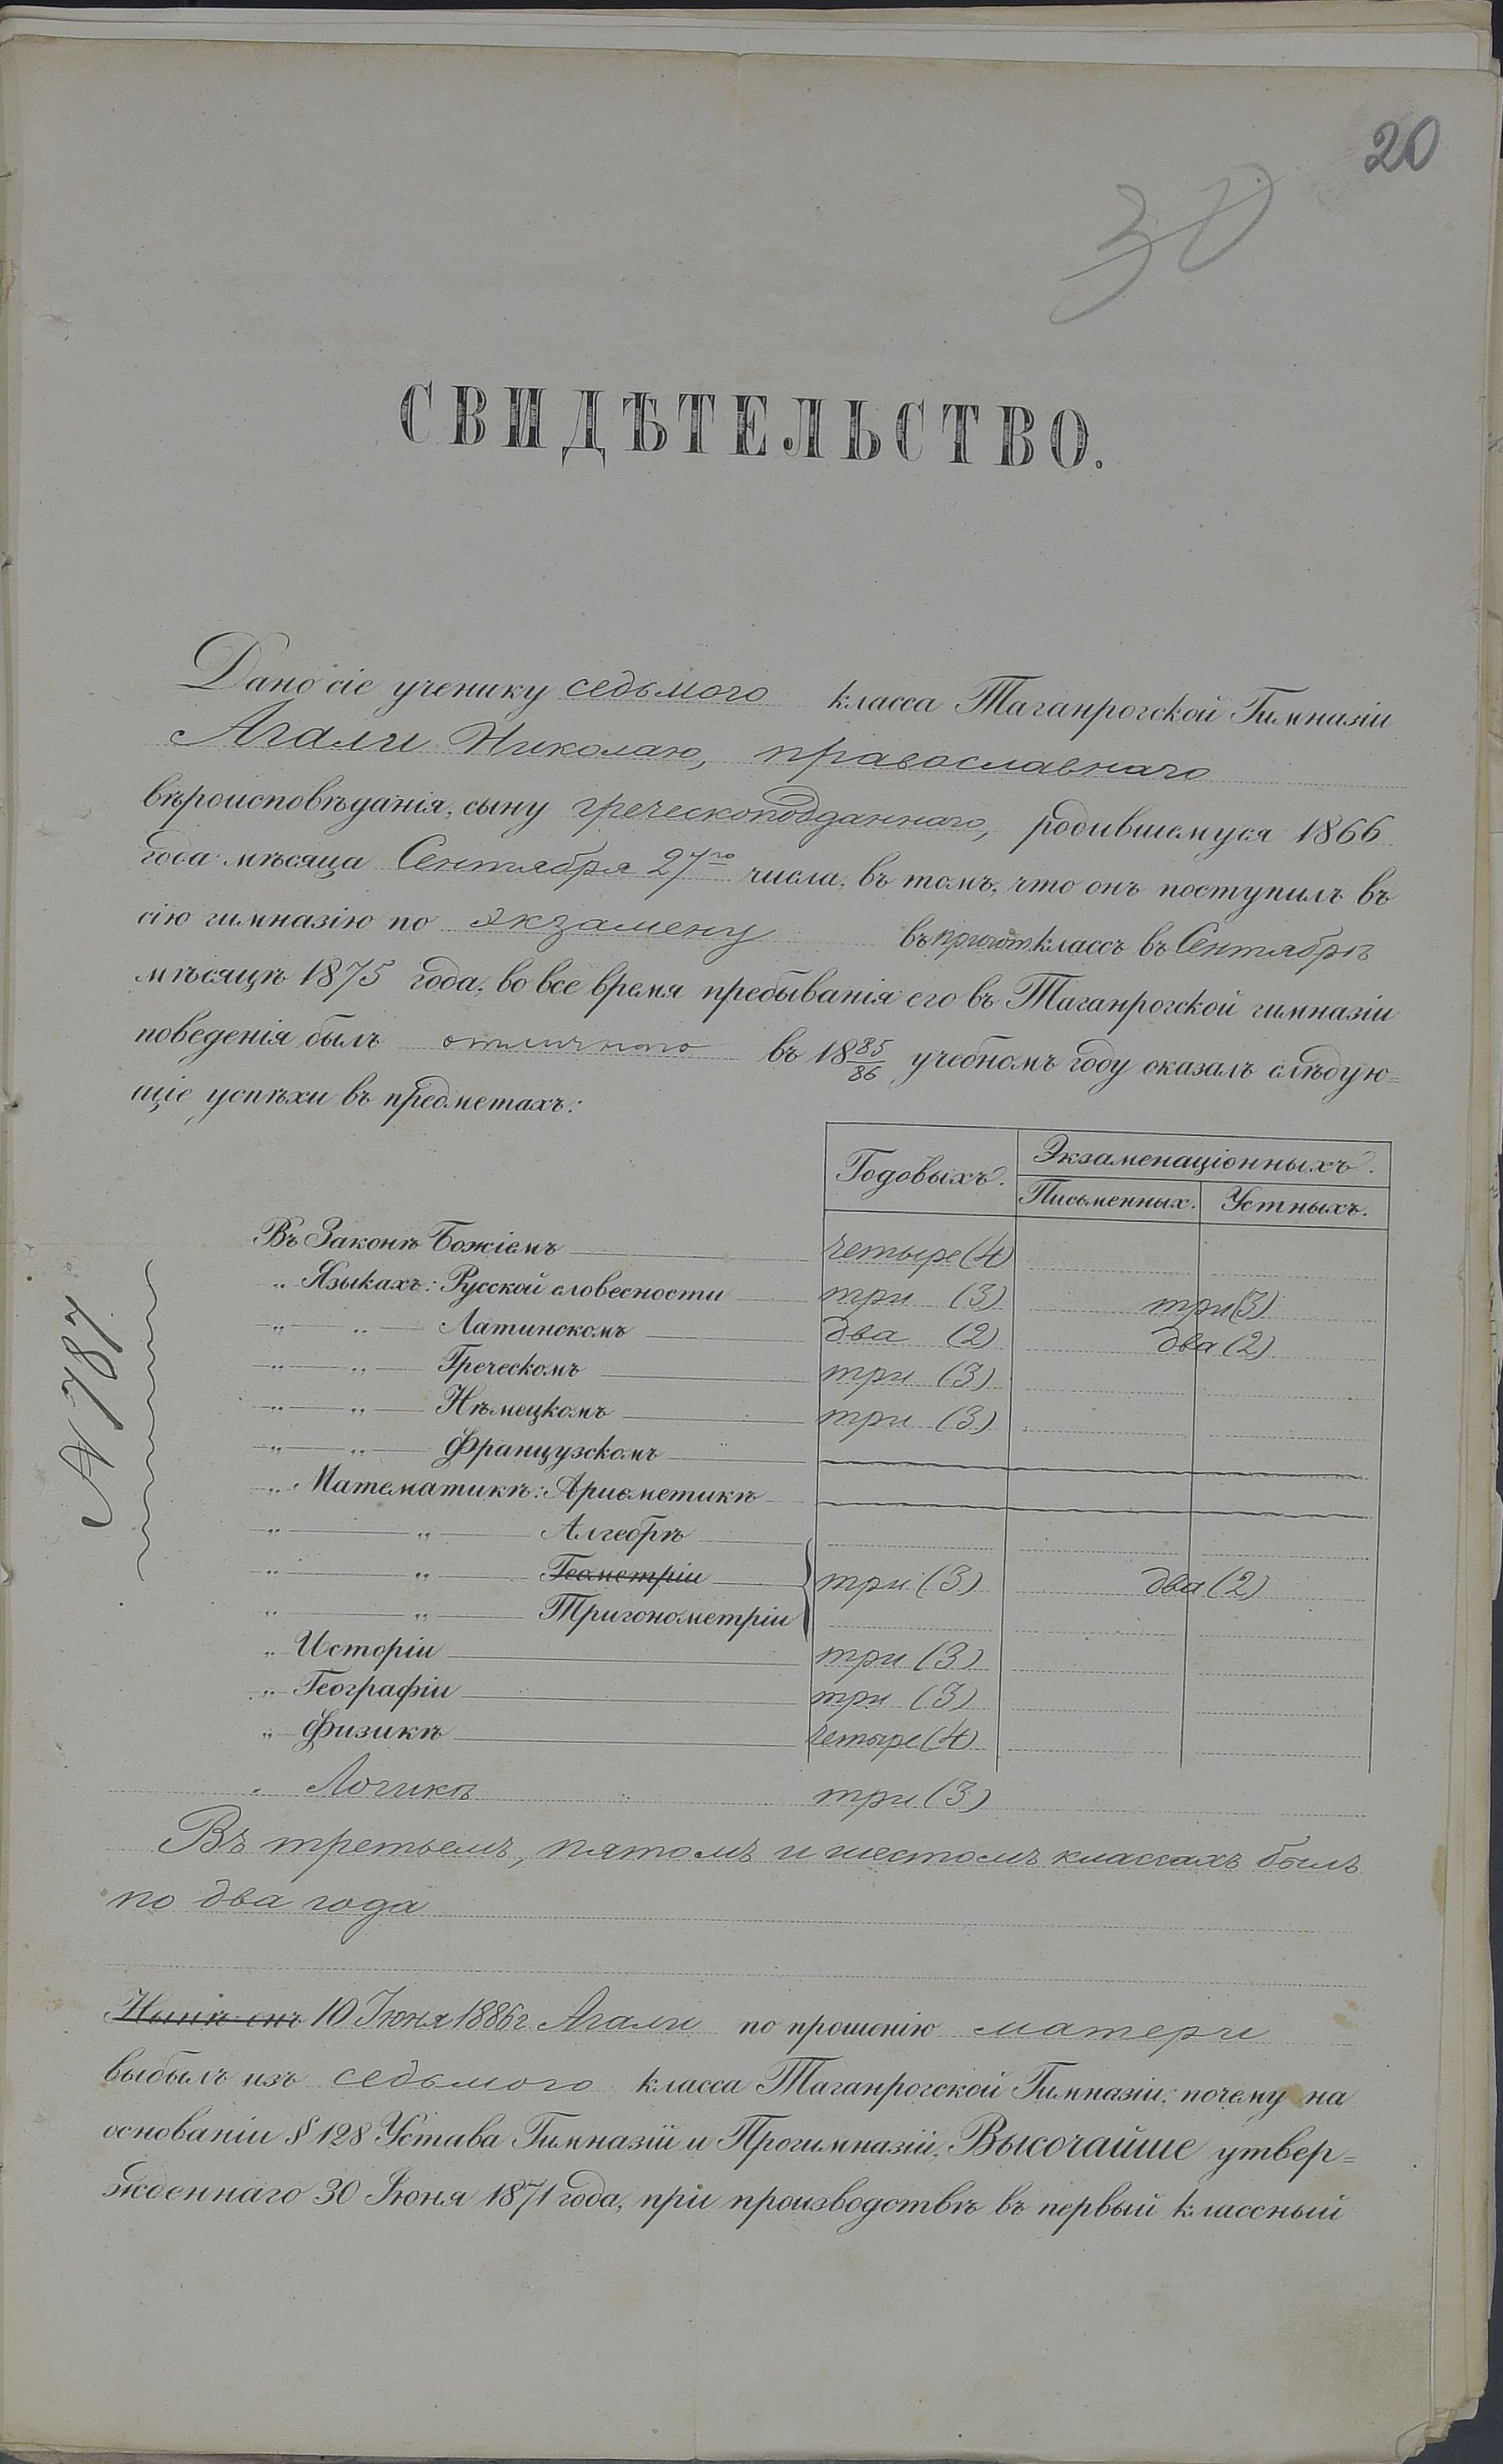 20
30
СВИДѢТЕЛЬСТВО.
Дано сіе ученику седьмого класса Таганрогской Гимназіи
Агали Николаю, православнаго
вѣроисповѣданія, сыну греческоподданнаго, родившемуся 1866
года мѣсяца Сентября 27го числа, въ томъ, что онъ поступилъ въ
сію гимназію по экзамену въ пригот классъ въ Сентябрѣ
мѣсяцѣ 1875 года, во все время пребыванія его въ Таганрогской гимназіи
поведенія былъ отличного въ 18 85/86 учебномъ году оказалъ слѣдую=
щіе успѣхи въ предметахъ:
Годовыхъ. Экзаменаціонныхъ.
Письменных. Устныхъ.
Въ Законѣ Божіемъ четыре (4)
„ Языкахъ: Русской словесности три (3) три (3)
„ „ Латинскомъ два (2) два (2)
„ „ Греческомъ три (3)
„ „ Нѣмецкомъ три (3)
„ „ Французскомъ
„ Математикѣ: Ариѳметикѣ
„ „ Алгебрѣ
„ „ Геометріи три (3) два (2)
„ „ Тригонометріи
„ Исторіи три (3)
„ Географіи три (3)
„ Физикѣ четыре (4)
„ Логикѣ три (3)
N 787
Въ третьемъ, пятомъ и шестомъ классахъ былъ
по два года
Нынѣ онъ 10 Іюня 1886 г. Агали по прошенію матери
выбылъ изъ седьмого класса Таганрогской Гимназіи; почему на
основаніи § 128 Устава Гимназій и Прогимназій, Высочайше утвер=
жденнаго 30 Іюня 1871 года, при производствѣ въ первый классный